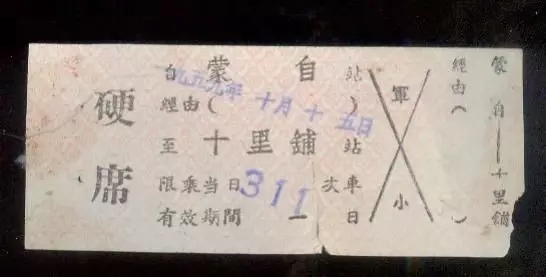 硬席
自 蒙自 站
一九五九年十月十五日
經由( )
至 十里鋪 站
限乘當日 311 次車
有效期間 一 日
軍 小
經由( )
蒙自——十里鋪